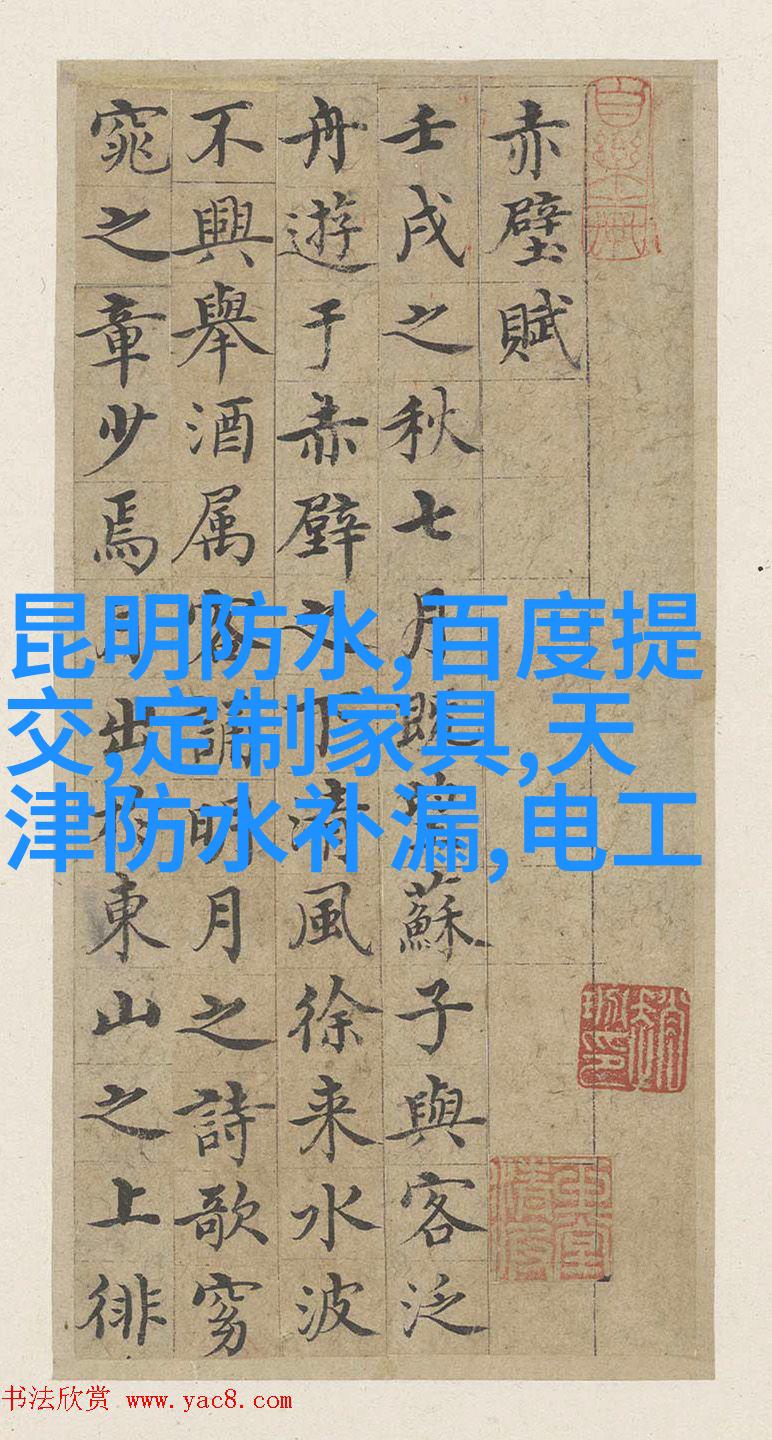 赤壁賦
壬戌之秋七月既望蘇子與客泛
舟遊于赤壁之下清風徐来水波
不興舉酒属客誦明月之詩歌窈
窕之章少焉月出於東山之上徘
昆明防水,百度提
交,定制家具,天
津防水补漏,电工
书法欣赏 www.yac8.com